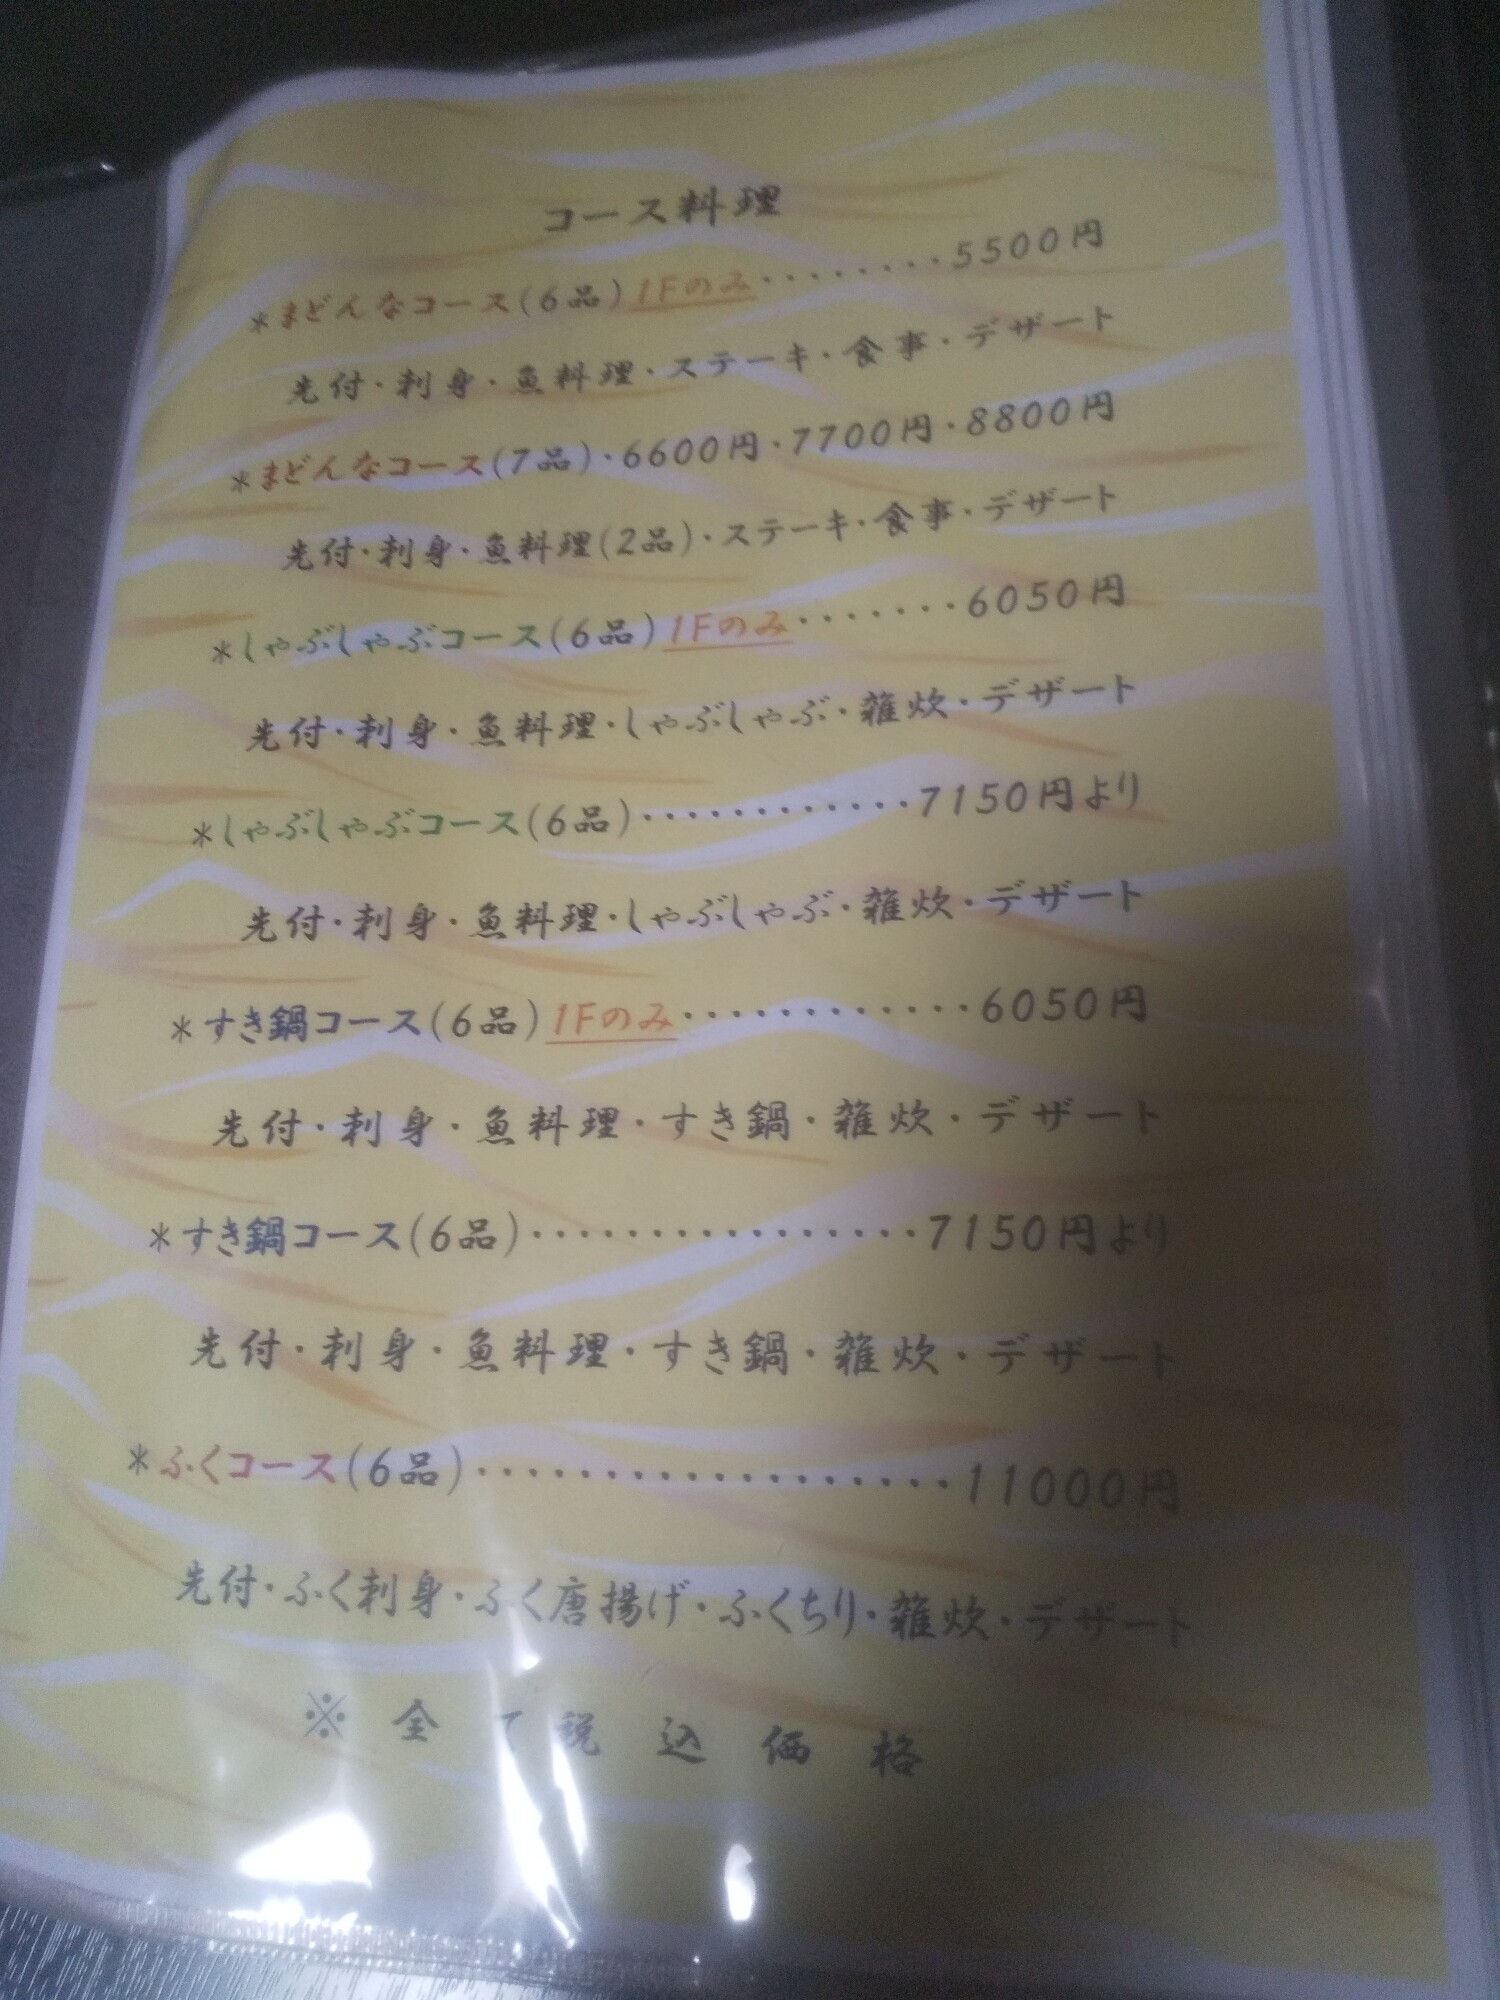 コース料理
*まどんなコース(6品)1Fのみ········5500円
先付·刺身·魚料理·ステーキ·食事·デザート
*まどんなコース(7品)·6600円·7700円·8800円
先付·刺身·魚料理(2品)·ステーキ·食事·デザート
*しゃぶしゃぶコース(6品)1Fのみ·······6050円
先付·刺身·魚料理·しゃぶしゃぶ·雑炊·デザート
*しゃぶしゃぶコース(6品)············7150円より
先付·刺身·魚料理·しゃぶしゃぶ·雑炊·デザート
*すき鍋コース(6品)1Fのみ·············6050円
先付·刺身·魚料理·すき鍋·雑炊·デザート
*すき鍋コース(6品)················7150円より
先付·刺身·魚料理·すき鍋·雑炊·デザート
*ふくコース(6品)···················11000円
先付·ふく刺身·ふく唐揚げ·ふくちり·雑炊·デザート
※全て税込価格